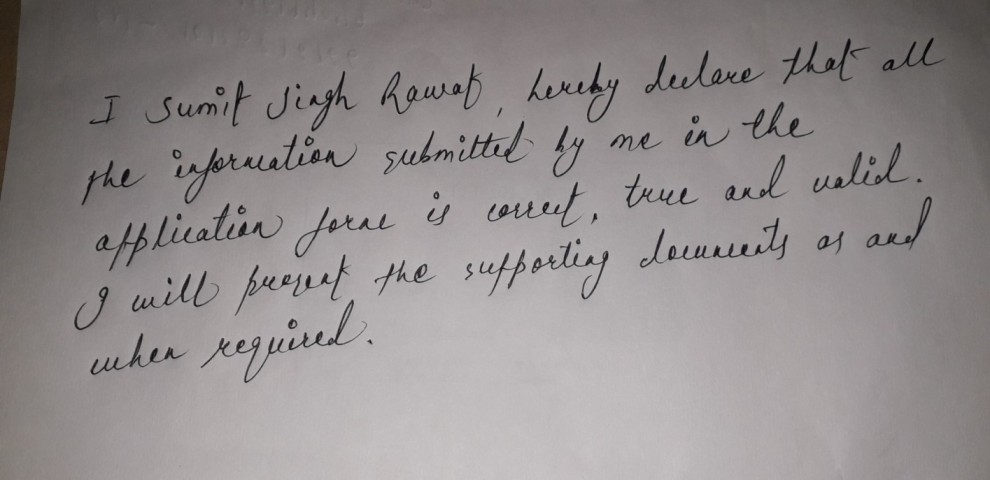 I Sumit Singh Rawat, hereby declare that all
the information submitted by me in the
application form is correct, true and valid.
I will present the supporting documents as and
when required.